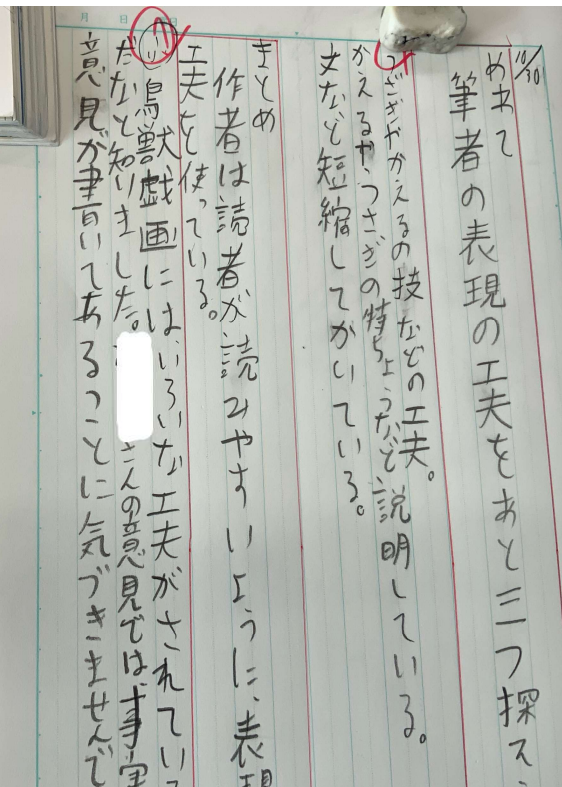 10/30
めあて
筆者の表現の工夫をあと三つ探そ
うさぎやかえるの技などの工夫。
かえるやうさぎの特ちょうなど説明している。
文など短縮してかいている。
まとめ
作者は読者が読みやすいように、表現
工夫を使っている。
鳥獣戯画にはいろいな工夫がされてい
だなと知りました。
さんの意見では、事実
意見が書いてあることに気づきませんで
月 日